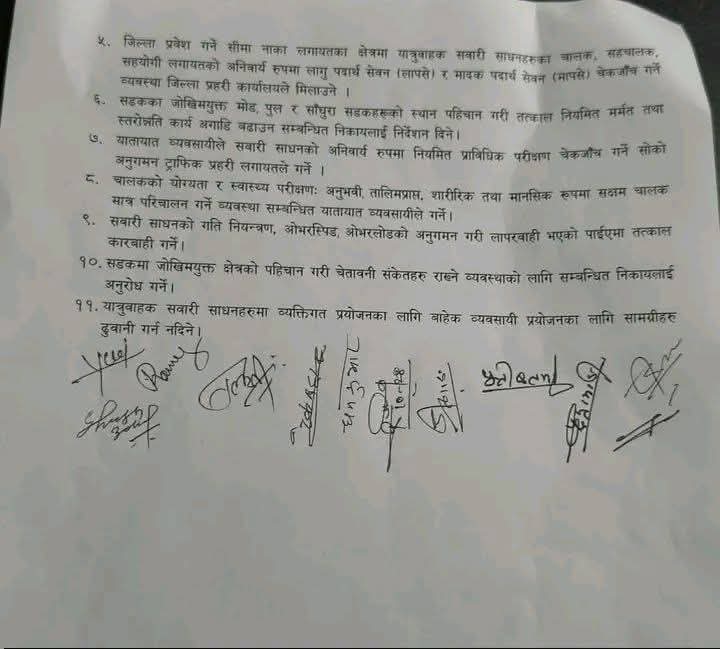 ५. जिल्ला प्रवेश गर्ने सीमा नाका लगायतका क्षेत्रमा यात्रुवाहक सवारी साधनहरुका चालक, सहचालक,
सहयोगी लगायतको अनिवार्य रुपमा लागु पदार्थ सेवन (लापसे) र मादक पदार्थ सेवन (मापसे) चेकजाँच गर्ने
व्यवस्था जिल्ला प्रहरी कार्यालयले मिलाउने ।
६. सडकका जोखिमयुक्त मोड, पुल र साँघुरा सडकहरूको स्थान पहिचान गरी तत्काल नियमित मर्मत तथा
स्तरोन्नति कार्य अगाडि बढाउन सम्बन्धित निकायलाई निर्देशन दिने।
७. यातायात व्यवसायीले सवारी साधनको अनिवार्य रुपमा नियमित प्राविधिक परीक्षण चेकजाँच गर्ने सोको
अनुगमन ट्राफिक प्रहरी लगायतले गर्ने ।
८. चालकको योग्यता र स्वास्थ्य परीक्षणः अनुभवी, तालिमप्राप्त, शारीरिक तथा मानसिक रुपमा सक्षम चालक
मात्र परिचालन गर्ने व्यवस्था सम्बन्धित यातायात व्यवसायीले गर्ने।
९. सवारी साधनको गति नियन्त्रण, ओभरस्पिड, ओभरलोडको अनुगमन गरी लापरबाही भएको पाईएमा तत्काल
कारबाही गर्ने।
१०. सडकमा जोखिमयुक्त क्षेत्रको पहिचान गरी चेतावनी संकेतहरु राख्ने व्यवस्थाको लागि सम्बन्धित निकायलाई
अनुरोध गर्ने।
११. यात्रुवाहक सवारी साधनहरुमा व्यक्तिगत प्रयोजनका लागि बाहेक व्यवसायी प्रयोजनका लागि सामग्रीहरु
ढुवानी गर्न नदिने।